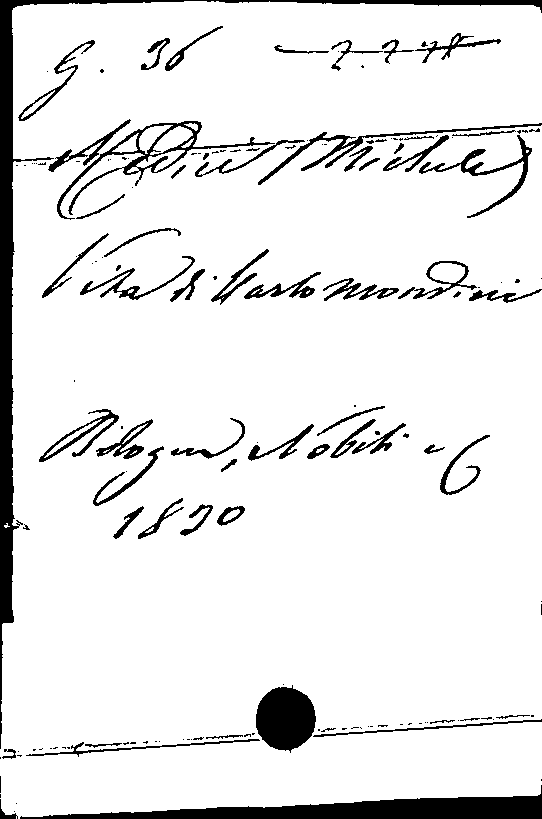 G. 36 2.2.78
Medici (Michele)
Vita di Carlo Mondini
Bologna, Nobili e C
1830